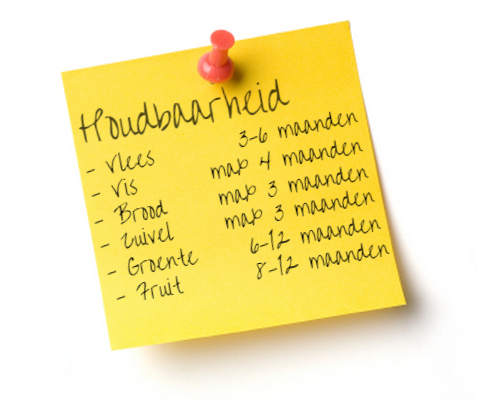 Houdbaarheid
- Vlees 3-6 maanden
- Vis max 4 maanden
- Brood max 3 maanden
- Zuivel max 3 maanden
- Groente 6-12 maanden
- Fruit 8-12 maanden